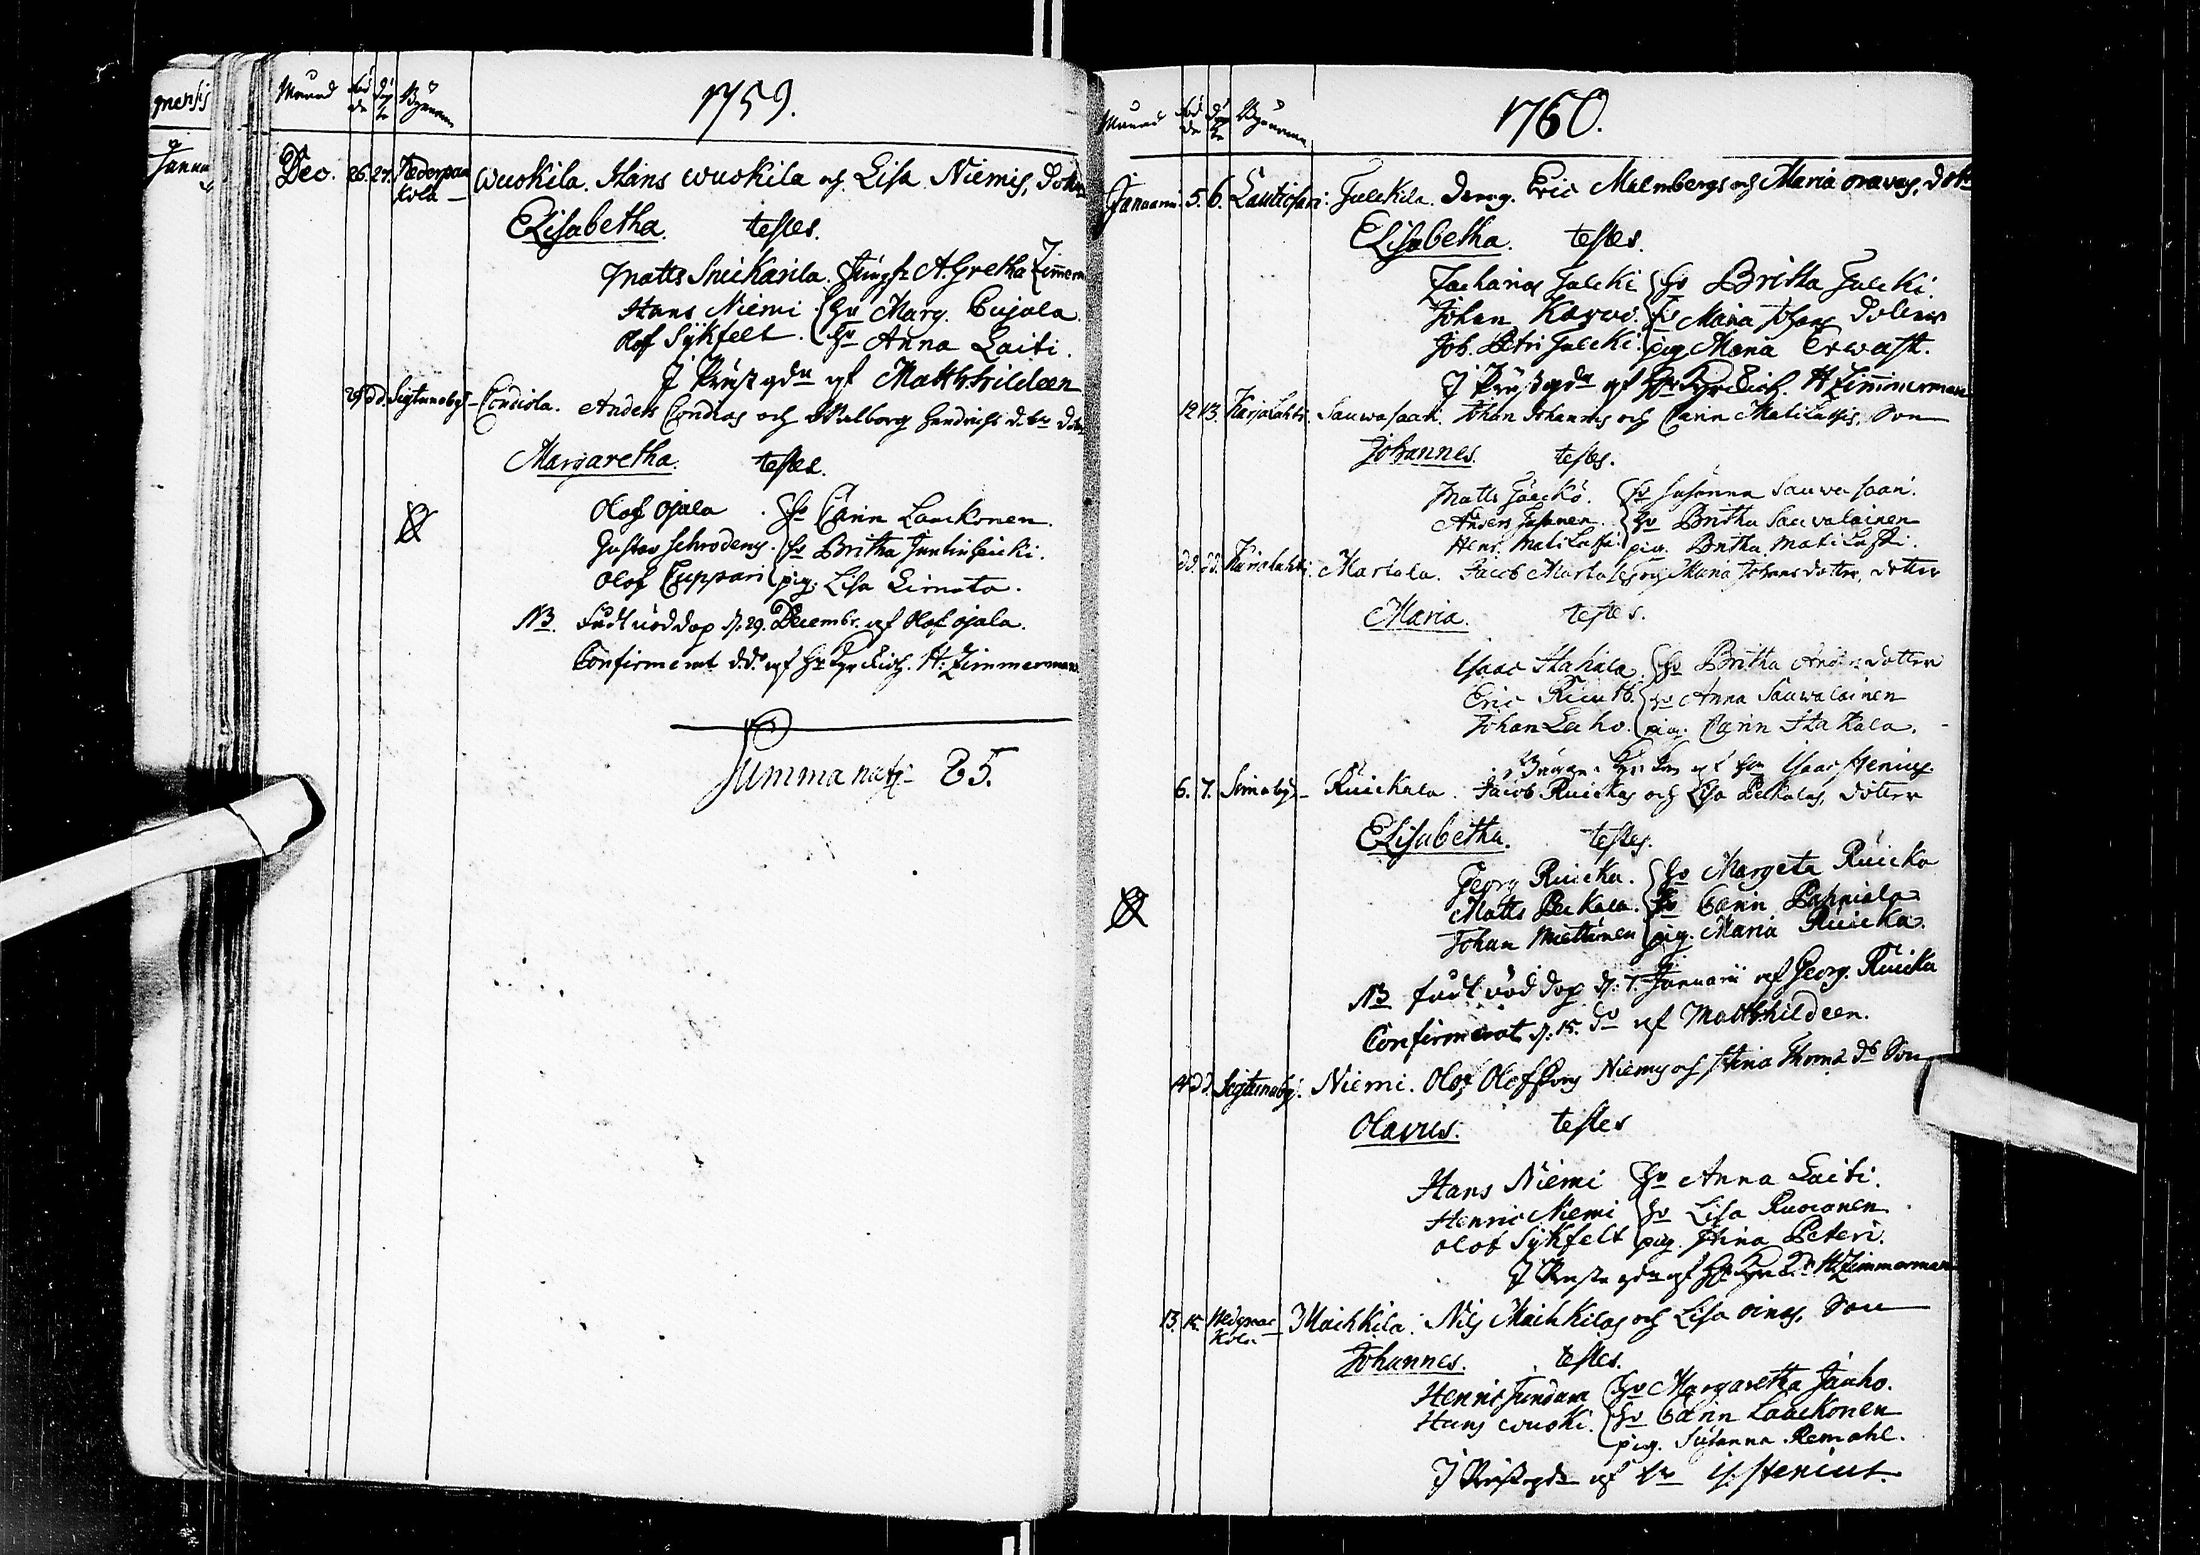 mensis
Janua
Månad födde döpte Bynamn
1759.
Dec. 26. 27. Nederpaa
kola – Wuokila. Hans Wuokila och Lisa Niemis, dotter
Elisabetha. testes.
Matts Snickarila. Jungfr A. Gretha Zimmerm
Hans Niemi. hu Marg. Cujala
Olof Sykfelt. hu Anna Laiti.
af Matth: Hildeen
29 dd. Sigtunaby – Condiola. Anders Condias och Walborg Hendrichs dotr dottr
Margaretha. testes.
Olof Ojala. hu Carin Laackonen.
Gustav Schroderus. hu Britha Juntinheicki.
Olof Cuppari pig. Lisa Limata.
NB. Födt nöddop d. 29. Decembr. af Olof Ojala.
Confirmerat dd:o af Hr H: Zimmermann
Summa nat: 85.
Månad födde döpte Bynamn
1760.
Januarii 5. 6. Lautiosari: Juleki​la. Eric Malmbergs och Maria Oravas, dotr
Elisabetha. testes.
Zacharias Juleki hu Britha Juleki.
Johan Karvo. hu Maria Johans dotter
Joh. Petri Juleki. pig Maria Erwast.
af Hr H Zimmerman
12 13. Karjalahti. Sauwasaari. Johan Johansons och Carin Matilassis, Son
Johannes. testes.
Matts Jäickö. hu Susanna Sauwasaari.
Anders Jussanen. hu Britha Sauvalainen
Henr. Matilassi. pig. Britha Matilassi.
dd. dd. Karialahti. Martala. Jacob Martalas och Maria Johansdotter, dotter
Maria. testes.
Isaac Hakala. hu Britha Andersdotter
Eric Ruuth. hu Anna Sauwalainen
Johan Laho. pig. Carin Hakala.
af Isaac Stenius.
6. 7. Simoby – Ruickala. Jacob Ruickas och Lisa Pekalas, dotter
Elisabetha. testes.
Georg Ruicka. hu Margeta Ruicka
Matts Pekala. hu Carin Pahniala
Johan Miettinen pig. Maria Ruicka.
NB födt nöddop d. 7. Januarii af Georg. Ruicka
Confirmerat d. 15. do af Matth: Hildeen.
14 dd. Sigtunaby. Niemi. Olof Olofsons Niemis och Stina Thoma dr Son
Olavus. testes
Hans Niemi hu Anna Laiti.
Henric Niemi hu Lisa Ruoranen
Olof Sykfelt pig. Stina Peteri.
af Hr H. Zimmerman
13. 15. Nederpaa
kola – Maikkila. Nils Maikkilas och Lisa Oinas, Son
Johannes. testes.
Henric Jundara hu Margaretha Jauho.
Hans Wuoki. hu Carin Laackonen
pig. Susanna Remahl.
af Hr Is: Stenius.